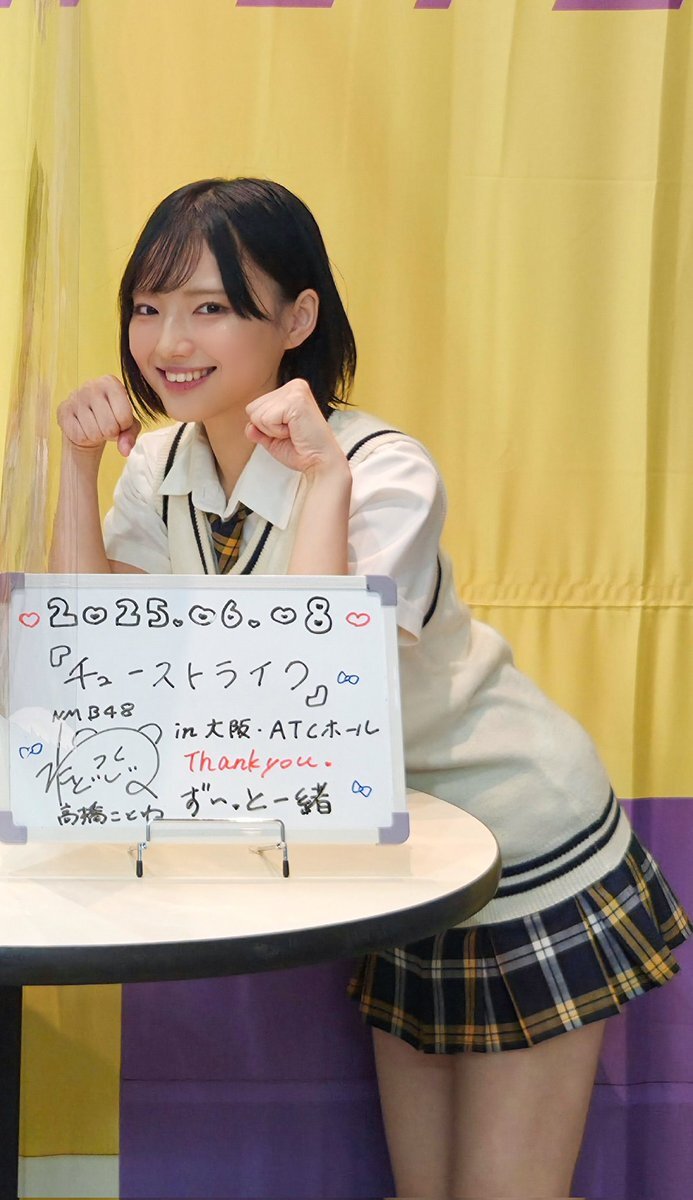 2025.06.08
『チューストライク』
NMB48
in 大阪・ATCホール
Thankyou.
高橋ことね
ずーっと一緒